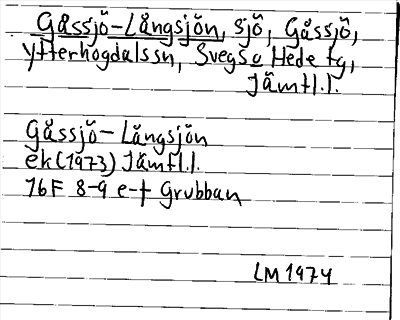 Gåssjö-Långsjön, sjö, Gåssjö,
Ytterhogdalssn, Svegs o Hede tg,
Jämtl.l.
Gåssjö-Långsjön
ek (1973) Jämtl.l.
16F 8-9 e-f Grubban
LM 1974